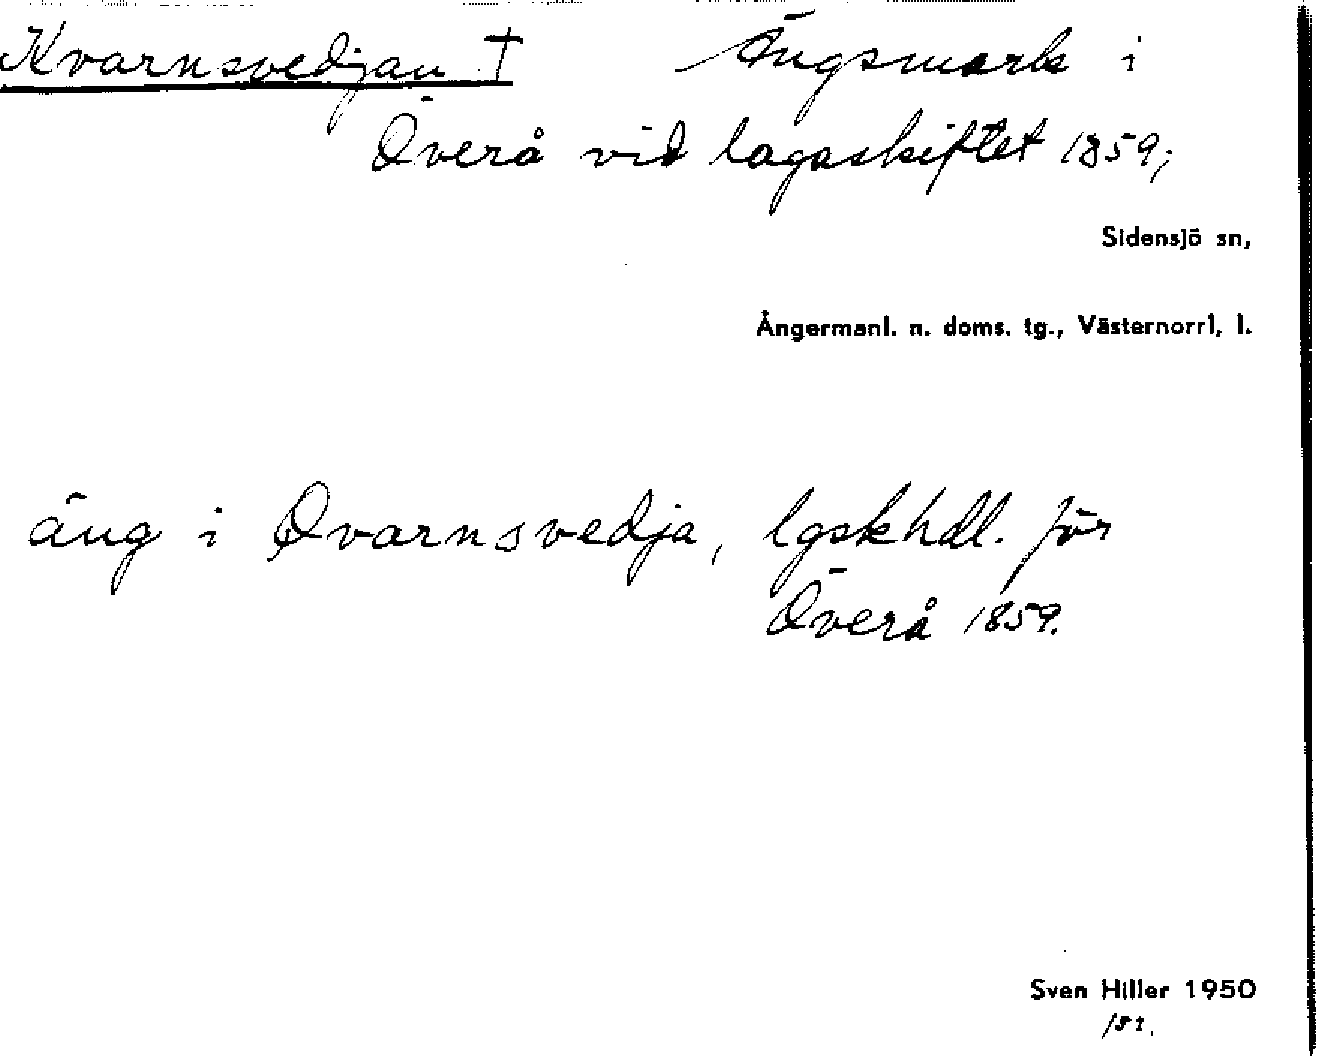 Kvarnsvedjan † Ängsmark i
Överå vid lagaskiftet 1859;
Sidensjö sn,
Ångermanl. n. doms. tg., Västernorrl. l.
äng i Qvarnsvedja, lgskhdl. för
Överå 1859.
Sven Hiller 1950